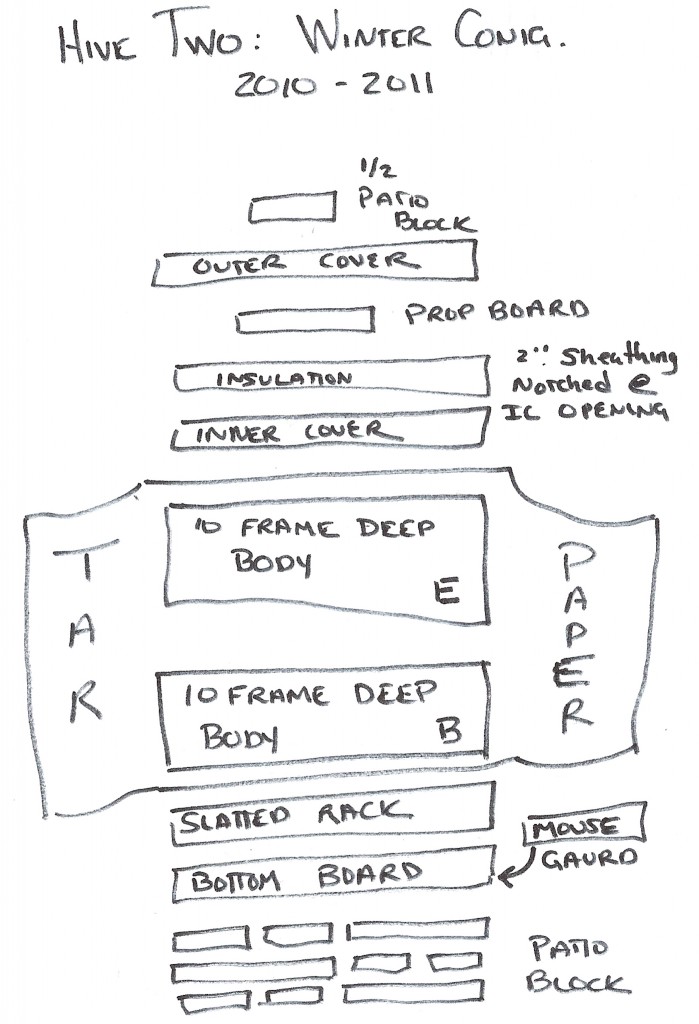 HIVE TWO: WINTER CONIG.
2010 - 2011
1/2
PATIO
BLOCK
OUTER COVER
PROP BOARD
INSULATION
2" Sheathing
Notched @
IC OPENING
INNER COVER
TAR
PAPER
10 FRAME DEEP
BODY
E
10 FRAME DEEP
BODY
B
SLATTED RACK
MOUSE
GAURD
BOTTOM BOARD
PATIO
BLOCK